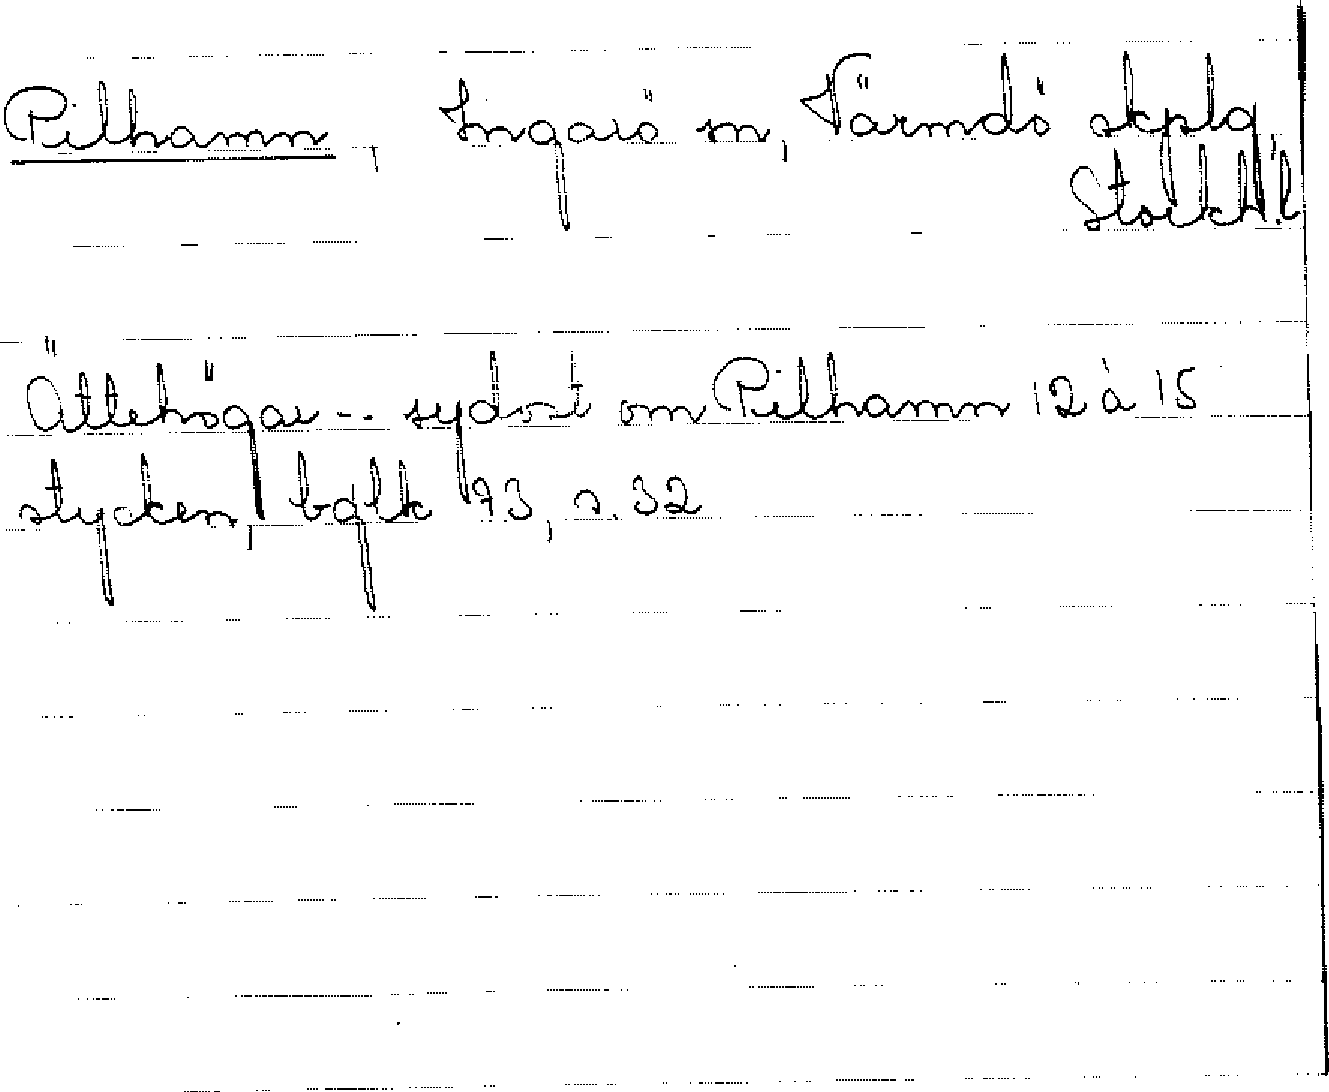 Pilhamn, Ingarö sn, Värmdö skplg,
Stockh. l
Ättehögar -- sydost om Pilhamn 12 à 15
stycken, bqlk 93, s. 32